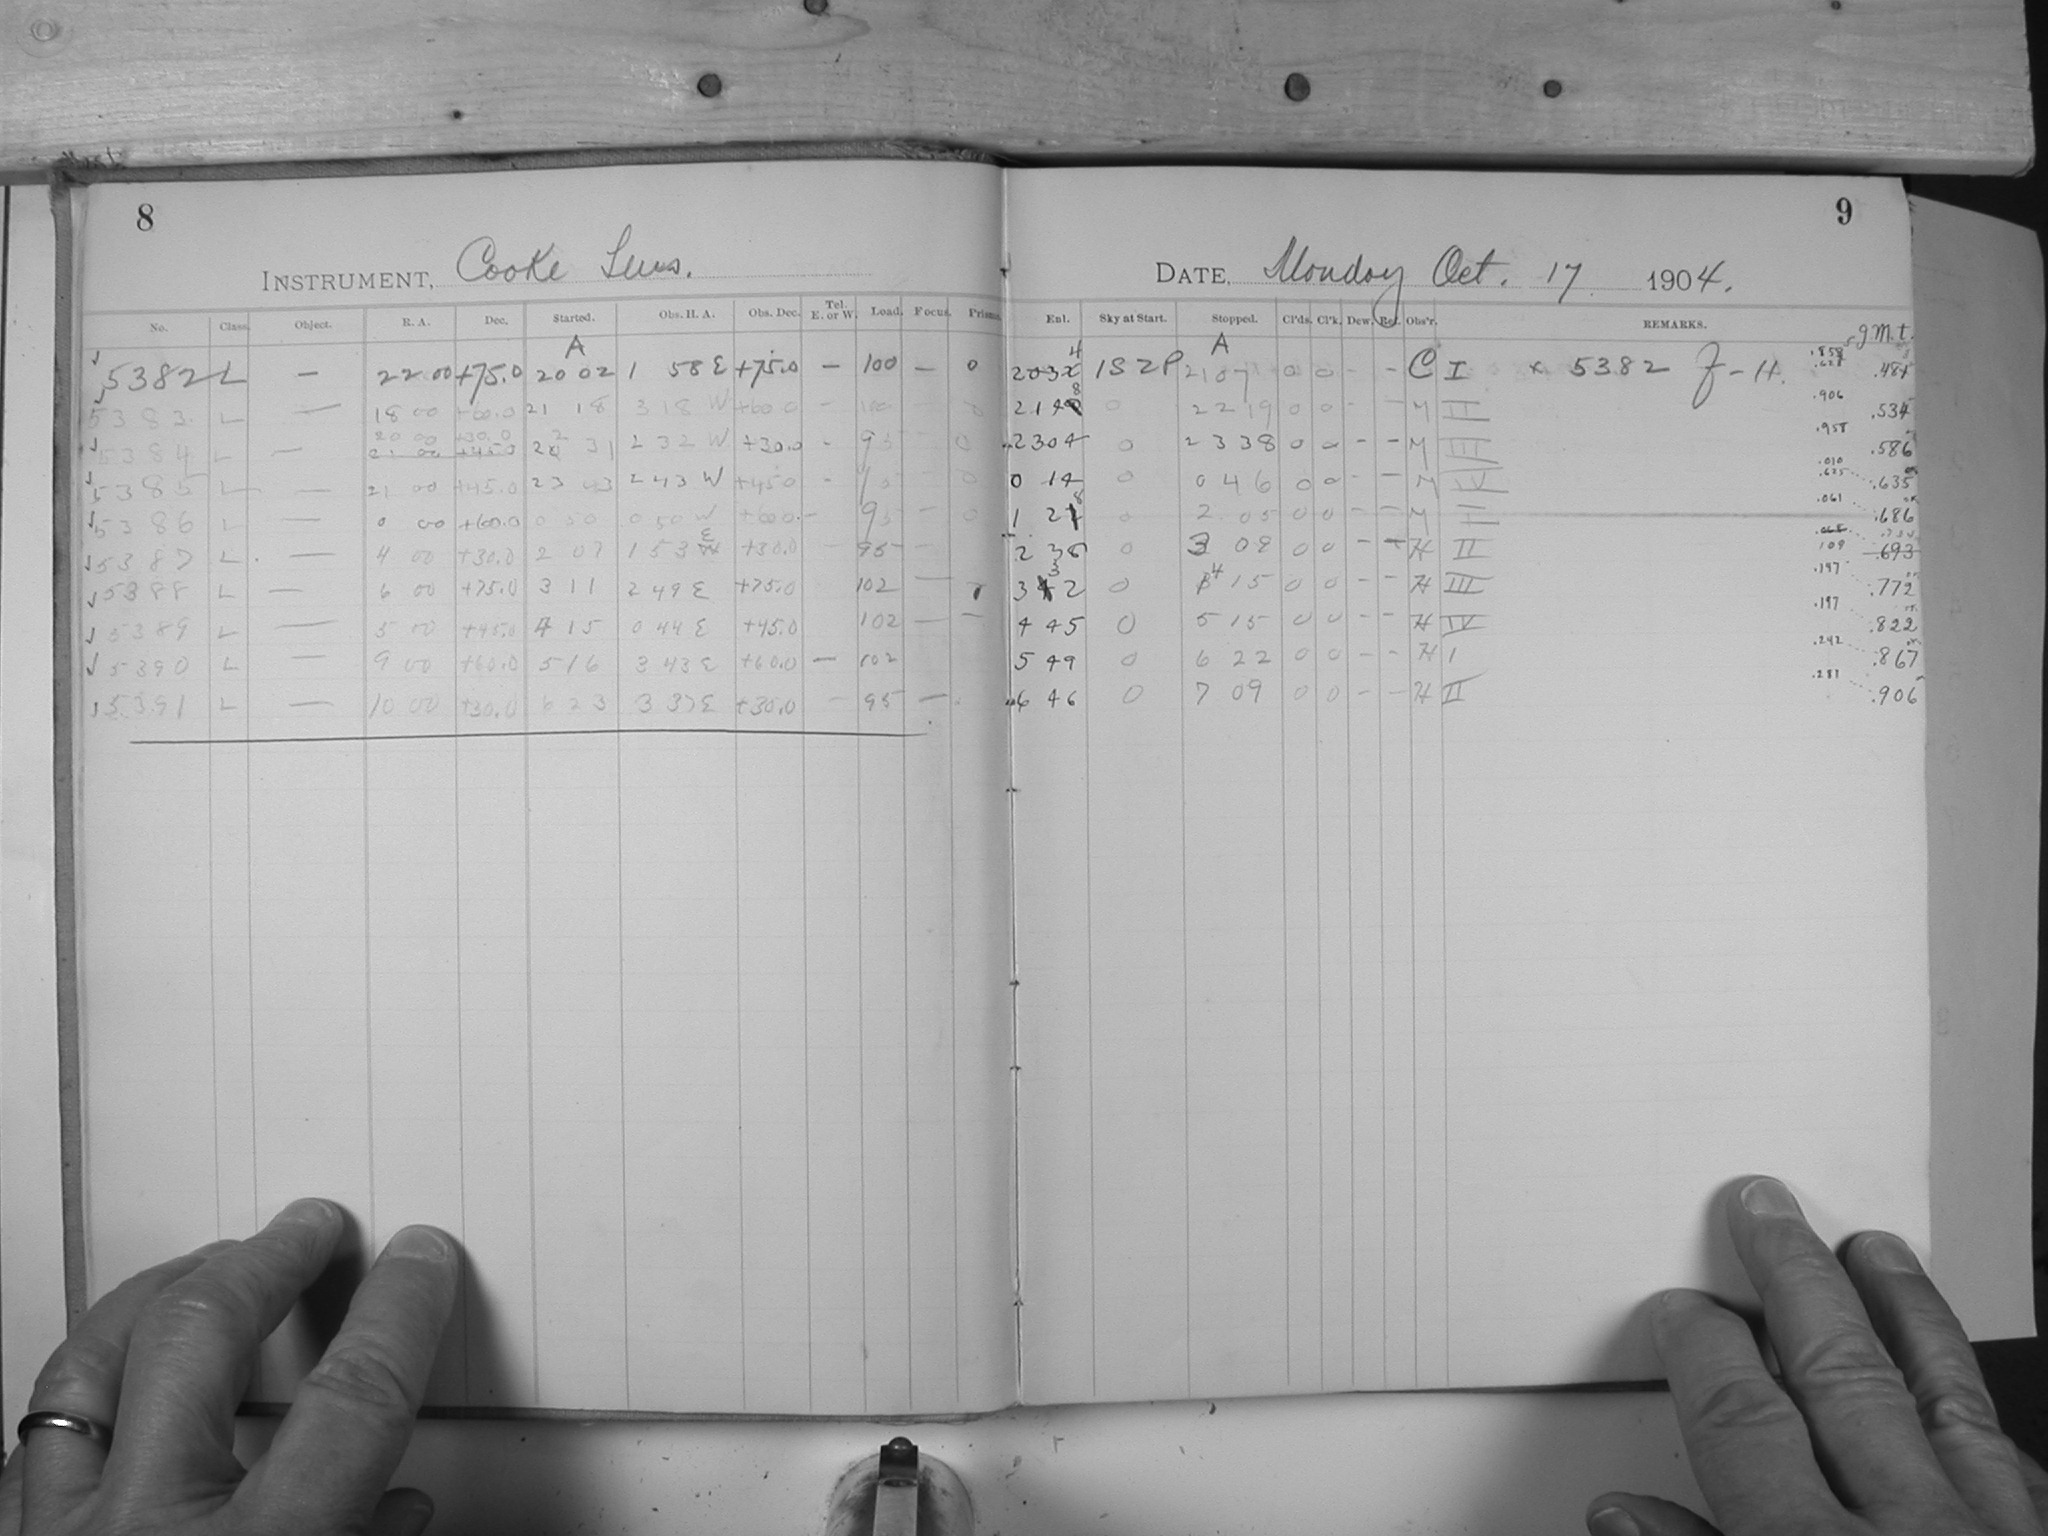 8
INSTRUMENT, Cooke Lens.
No. Class. Object. R. A. Dec. Started. Obs. H. A. Obs. Dec. Tel. E. or W. Load. Focus. Prisms.
A
5382 L — 22 00 +75.0 20 02 1 58 E +75.0 — 100 — 0
5383 L — 18 00 +60.0 21 18 3 18 W +60.0 - 100 - 0
20 00 +30.0
5384 L — 21 00 +45.0 31 2 32 W +30.0 - 95 - 0
5385 L — 21 00 +45.0 23 43 2 43 W +45.0 - 0
5386 L — 0 00 +60.0 0 50 0 50 W +60.0 - 95 - 0
5387 L — 4 00 +30.0 2 07 1 53 E +30.0 - 95 -
5388 L — 6 00 +75.0 3 11 2 49 E +75.0 102 —
5389 L — 5 00 +45.0 4 15 0 44 E +45.0 102 — —
5390 L — 9 00 +60.0 5 16 3 43 E +60.0 — 102
5391 L — 10 00 +30.0 6 23 3 37 E +30.0 - 95 —
9
DATE, Monday Oct. 17 1904.
Enl. Sky at Start. Stopped. Cl'ds. Cl'k. Dew. Ref. Obs'r. REMARKS. J.M.t.
A
2034 1S2P 2107 0 0 - - C I × 5382 J-H. .858
2148 0 2219 0 0 - - M II .906 .534
2304 0 2338 0 0 - - M III .958 .586
0 14 0 0 46 0 0 - - M IV .010 .635 .635
1 28 0 2 05 0 0 - - M I .061 .686
2 38 0 3 08 0 0 - - H II .068 109 .693
3 32 0 4 15 0 0 - - H III .147 .772
4 45 0 5 15 0 0 - - H IV .197 .822
5 49 0 6 22 0 0 - - H I .242 .867
6 46 0 7 09 0 0 - - H II .281 .906